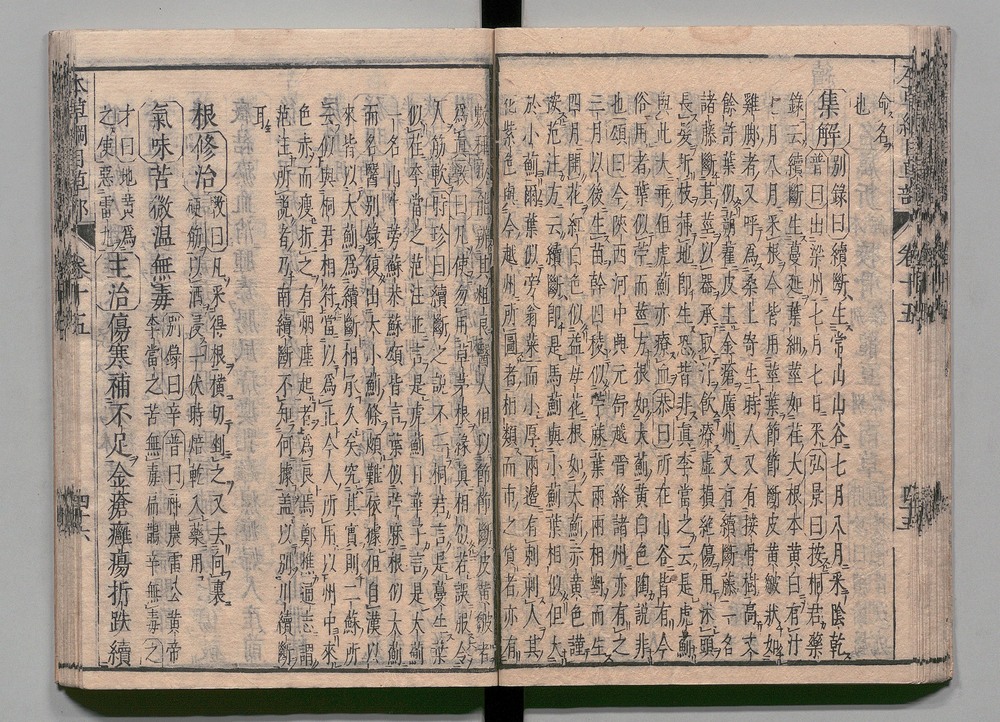 命名
也
集解別錄曰續斷生常山山谷七月八月采陰乾
普曰出梁州七月七日采弘景曰按桐君藥
錄云續斷生蔓延葉細莖如荏大根本黃白有汁
七月八月采根今皆用莖葉節節斷皮黃皺狀如
雞脚者又呼為桑上寄生時人又有接骨樹高丈
餘許葉似蒴藋皮主金瘡廣州又有續斷藤一名
諾藤斷其莖以器承取汁飲療虛損絕傷用沐頭
長髮折枝插地即生恐皆非真李當之云是虎薊
與此大乖但虎薊亦療血恭曰所在山谷皆有今
俗用者葉似苧而莖方根如大薊黃白色陶說非
也頌曰今陝西河中興元舒越晉絳諸州亦有之
三月以後生苗幹四稜似苧麻葉兩兩相對而生
四月開花紅白色似益母花根如大薊赤黃色謹
按范汪方云續斷即是馬薊與小薊葉相似但大
於小薊爾葉似旁翁菜而小厚兩邊有刺刺人其
花紫色與今越州所圖者相類而市之貨者亦有
數種少能辨其粗良醫人但以節節斷皮黃皺者
為真斅曰凡使勿用草茅根緣真相似若誤服令
人筋軟時珍曰續斷之說不一桐君言是蔓生葉
似荏李當之范汪並言是虎薊日華子言是大薊
一名山牛蒡蘇恭蘇頌皆言葉似苧麻根似大薊
而名醫別錄復出大小薊條頗難依據但自漢以
來皆以大薊為續斷相承久矣究其實則二蘇所
云似與桐君相符當以為正今人所用以川中來
色赤而瘦折之有烟塵起者為良焉鄭樵通志謂
范汪所說者乃南續斷不知何據蓋以別川續斷
耳
根修治斅曰凡采得根橫切剉之又去向裏
硬筋以酒浸一伏時焙乾入藥用
氣味苦微温無毒別錄曰辛普曰神農雷公黃帝
李當之苦無毒扁鵲辛無毒之
才曰地黃為
之使惡雷丸主治傷寒補不足金瘡癰瘍折跌續
本草綱目草部 卷十五 四十五
本草綱目草部 卷十五 四十六